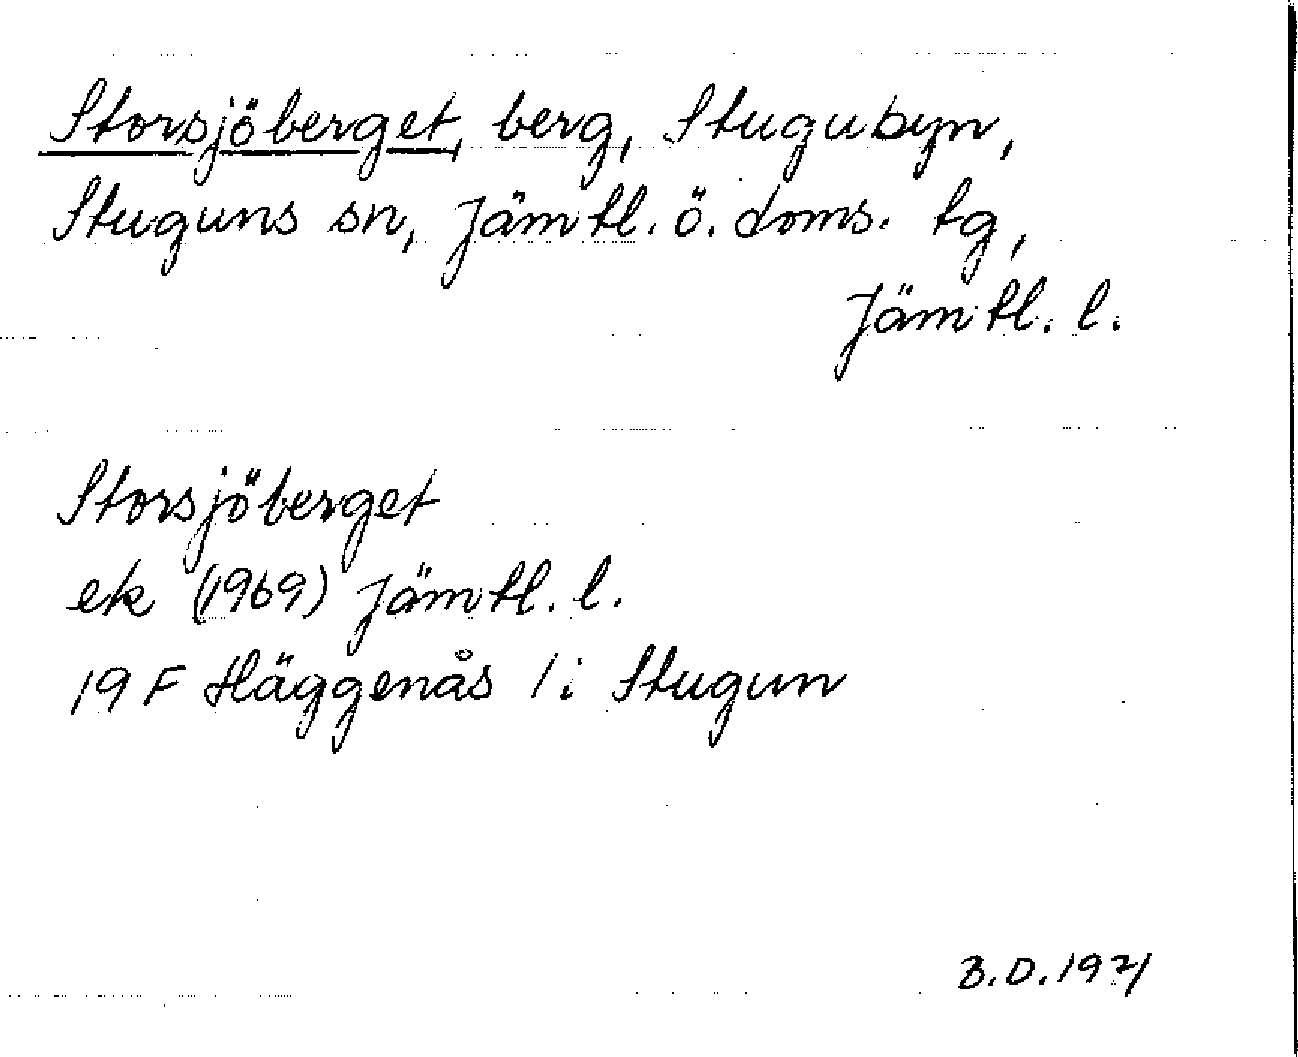 Storsjöberget, berg, Stugubyn,
Stuguns sn, Jämtl. ö. doms. tg,
Jämtl. l.
Storsjöberget
ek (1969) Jämtl. l.
19 F Häggenås 1 i Stugun
B.D. 1971